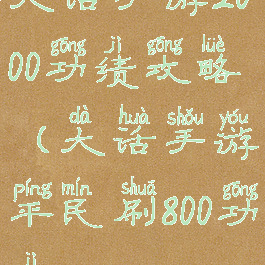 大话手游20
gōng jì gōng lüè
00功绩攻略
dà huà shǒu yóu
(大话手游
píng mín shuā gōng
平民刷800功
jì